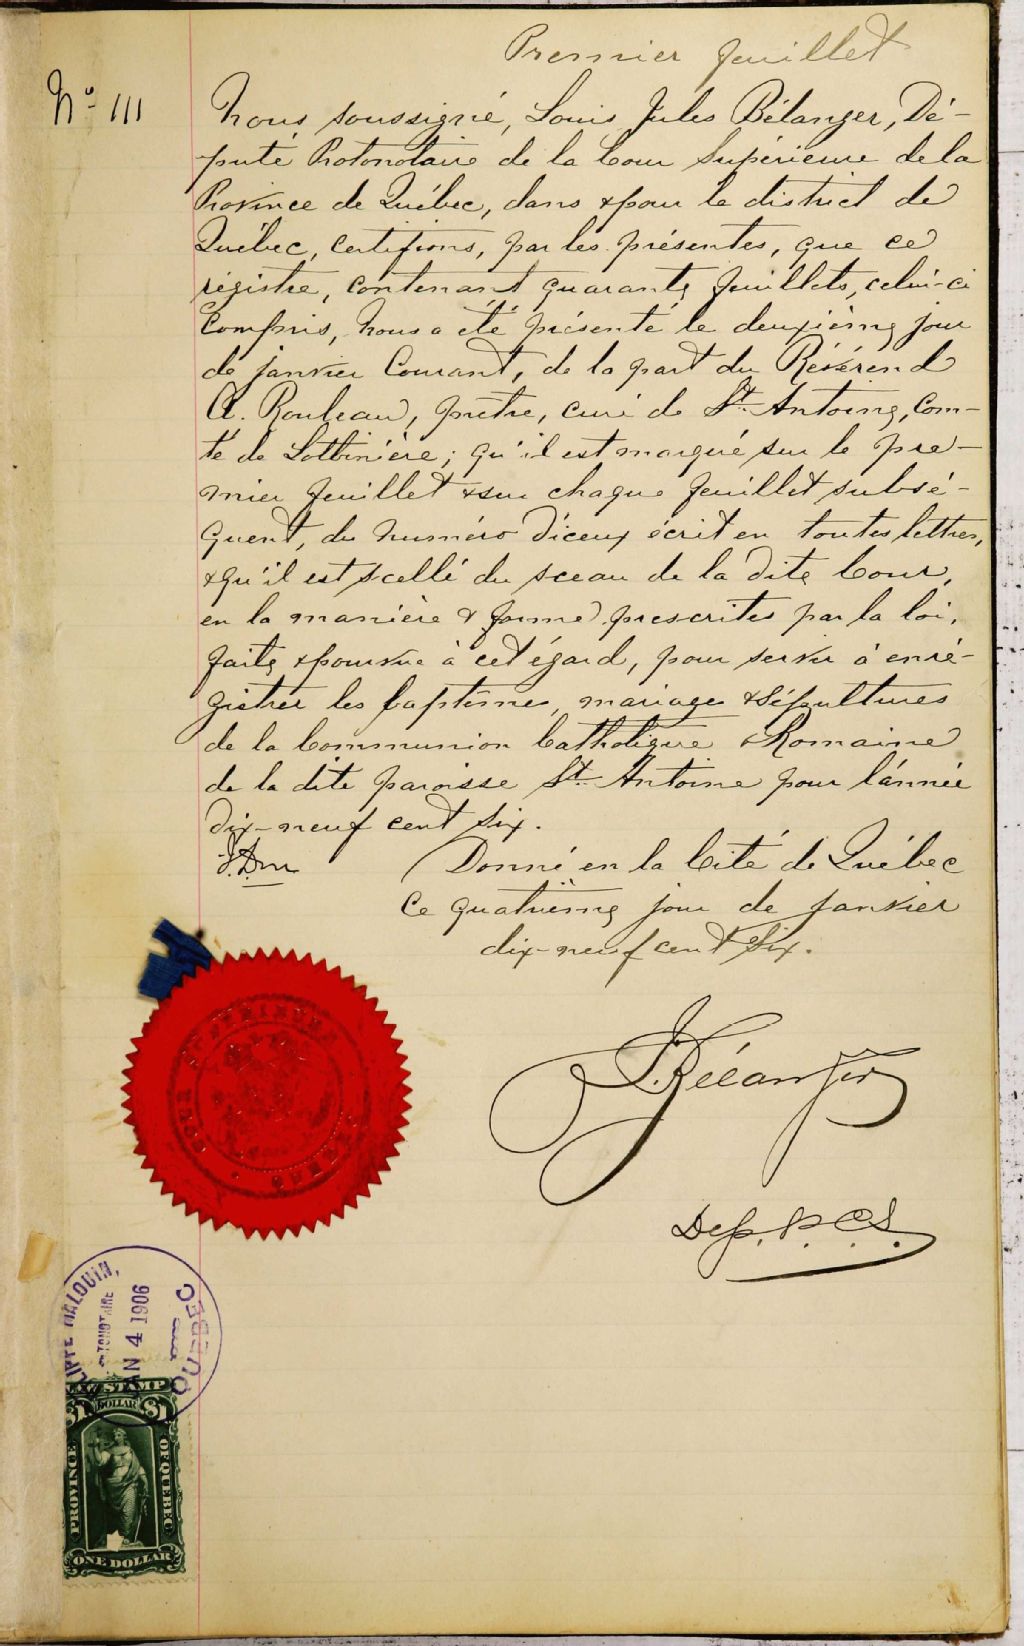 Premier feuillet
No 111
Nous soussigné, Louis Jules Bélanger, Dé-
puté Protonotaire de la Cour Supérieure de la
Province de Québec, dans & pour le district de
Québec, certifions, par les présentes, que ce
régistre, contenant quarante feuillets, celui-ci
compris, nous a été présenté le deuxième jour
de janvier courant, de la part du Révérend
A. Rouleau, prêtre, curé de St. Antoine, Com-
té de Lotbinière; qu'il est marqué sur le pre-
mier feuillet & sur chaque feuillet subsé-
quent, du numéro d'iceux écrit en toutes lettres,
& qu'il est scellé du sceau de la dite Cour,
en la manière & forme prescrites par la loi,
faite & pourvue à cet égard, pour servir à enré-
gistrer les baptêmes, mariages & sépultures
de la Communion Catholique & Romaine
de la dite paroisse St. Antoine pour l'année
dix-neuf cent six.
Donné en la Cité de Québec
ce quatrième jour de janvier
dix-neuf cent six.
Bélanger
Dep. P.C.S.
COUR SUPERIEURE
QUEBEC
MALOUIN,
JAN 4 1906
QUEBEC
STAMP
$1 DOLLAR $1
PROVINCE OF QUEBEC
ONE DOLLAR